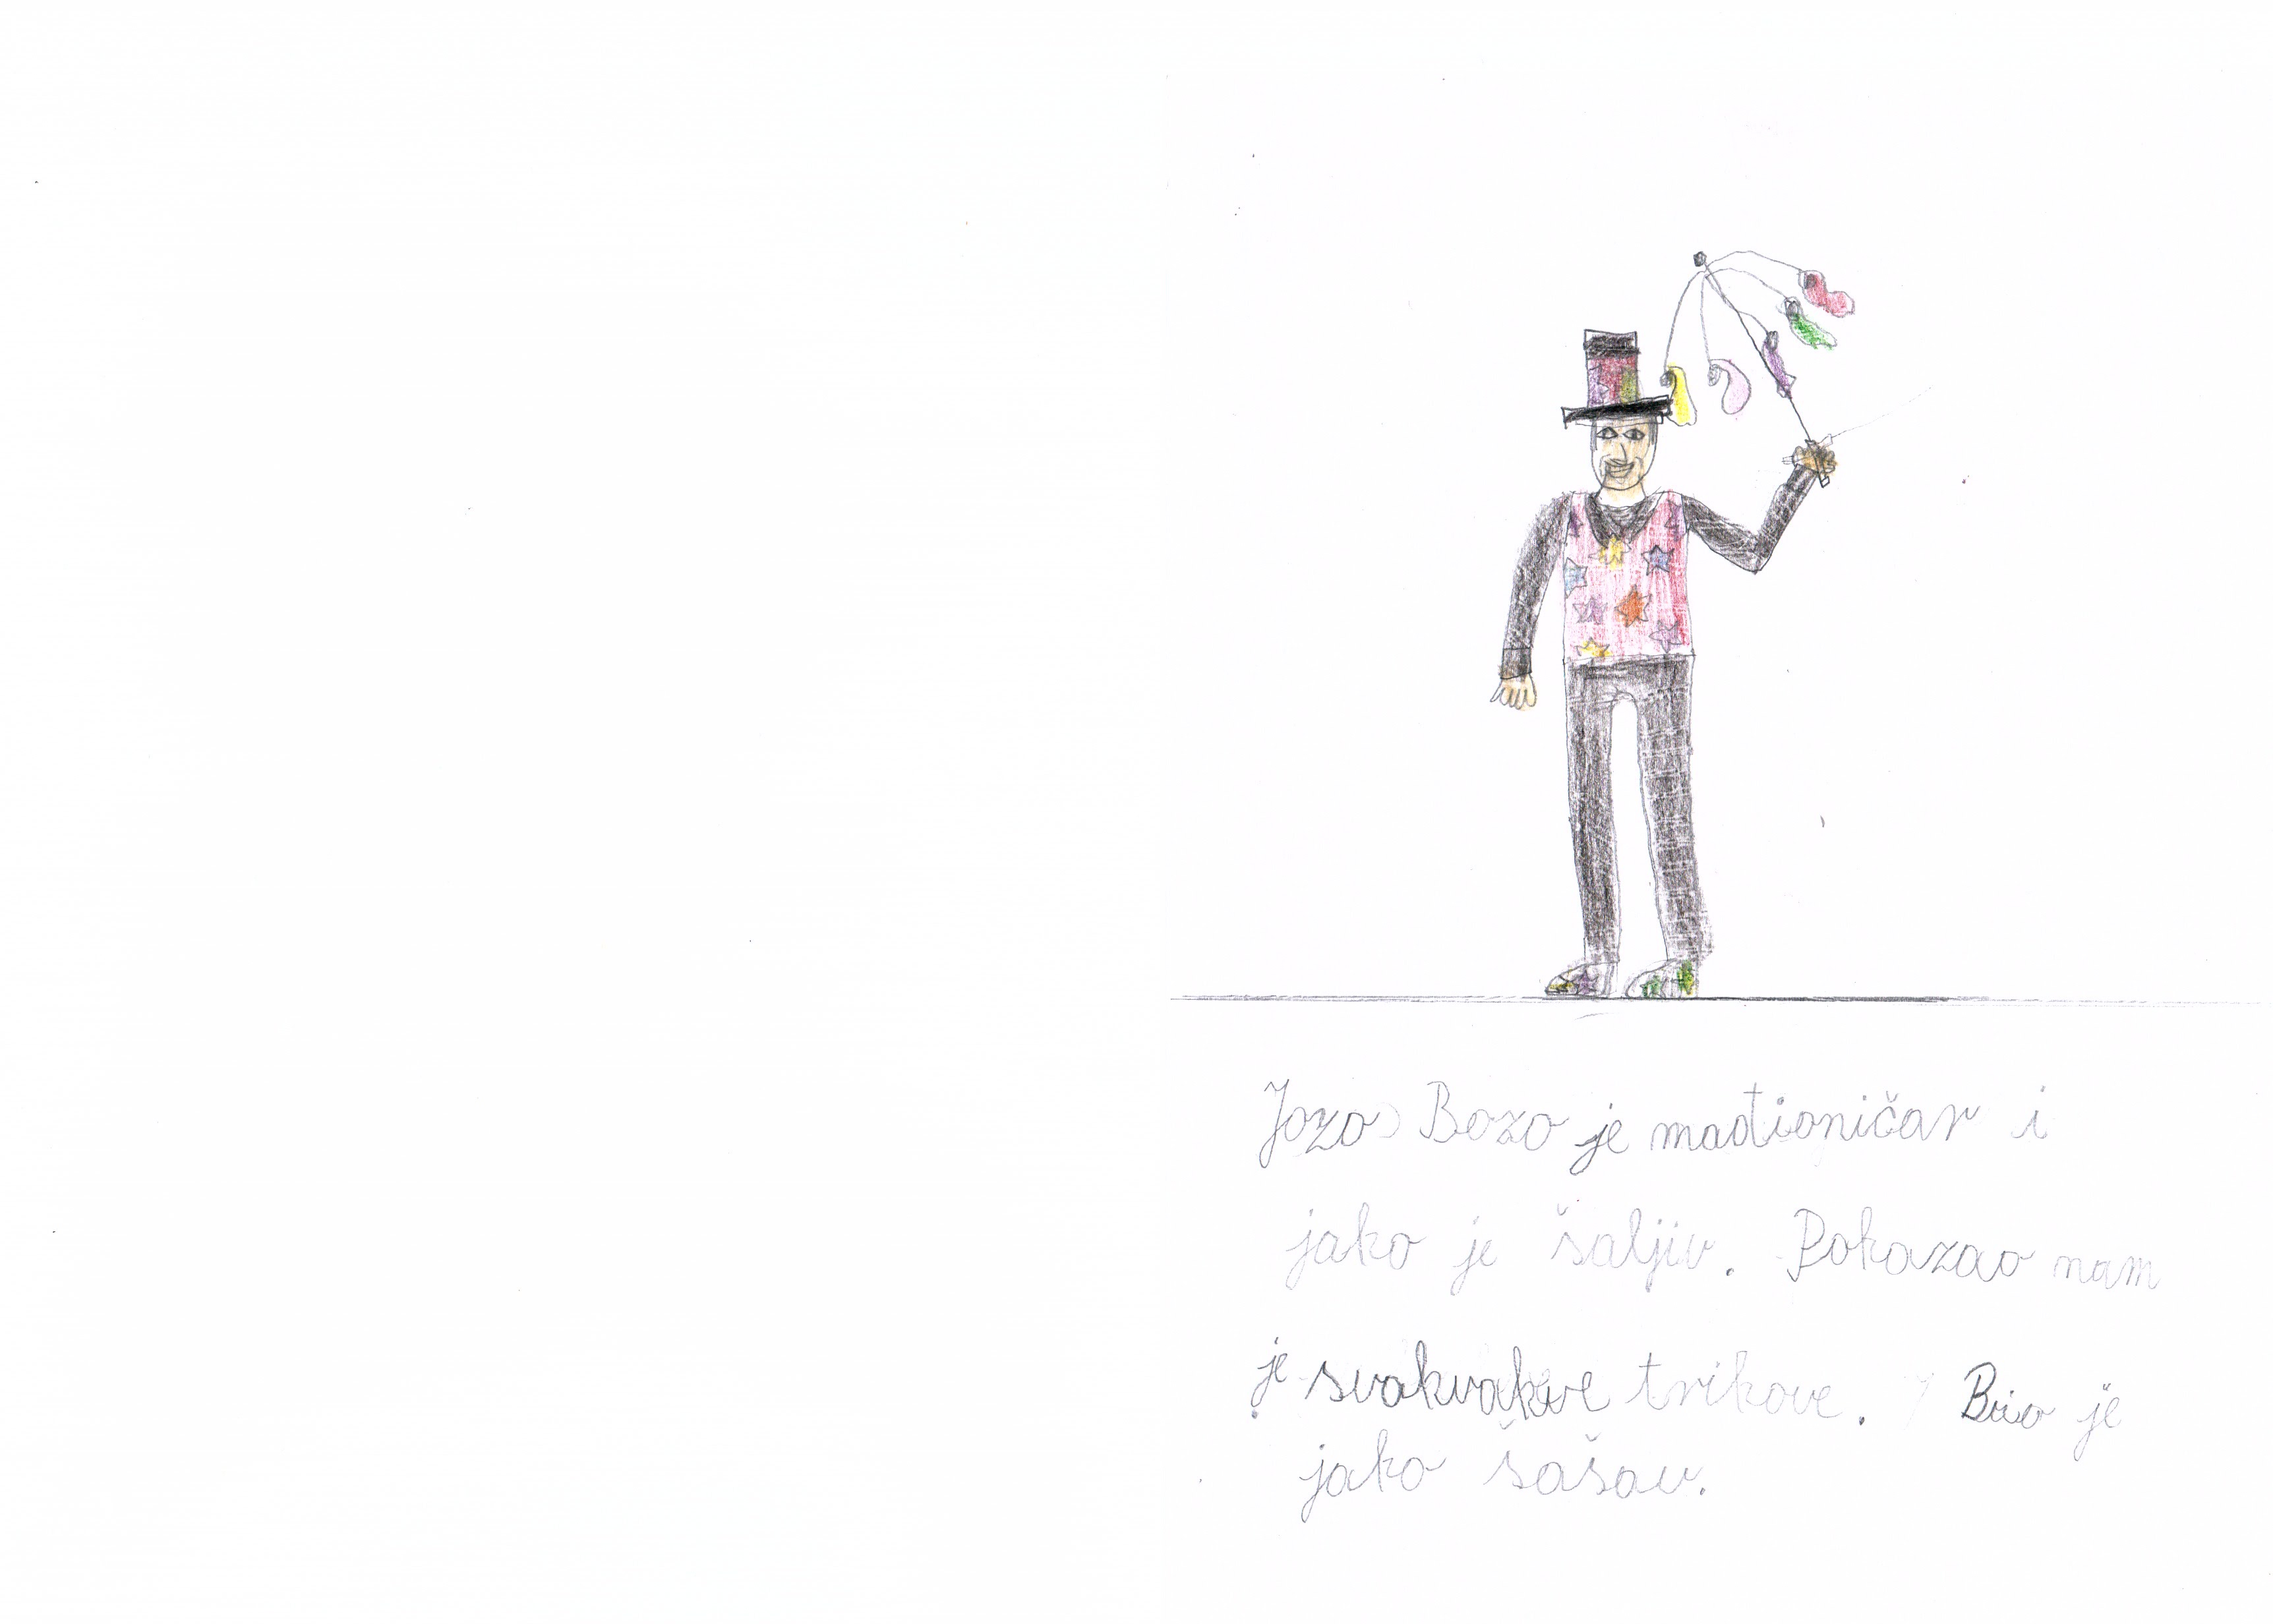 Jozo Bozo je mađioničar i
jako je šaljiv. Pokazao nam
je svakvakve trikove. Bio je
jako šašav.